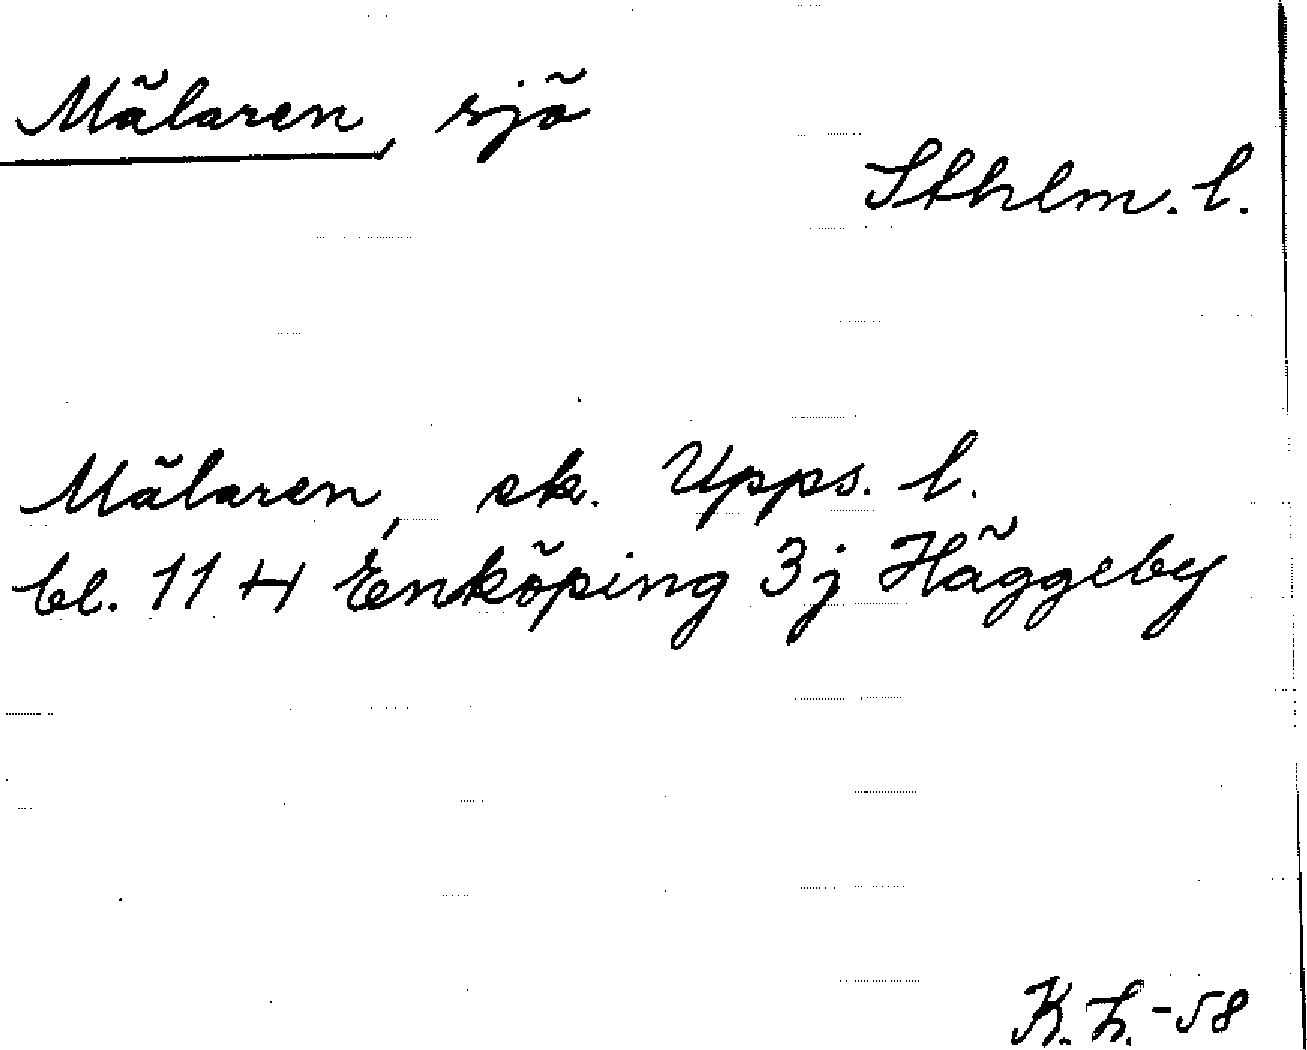 Mälaren, sjö
Sthlm. l.
Mälaren, ek. Upps. l.
bl. 11 H Enköping 3j Häggeby
K. L. -58